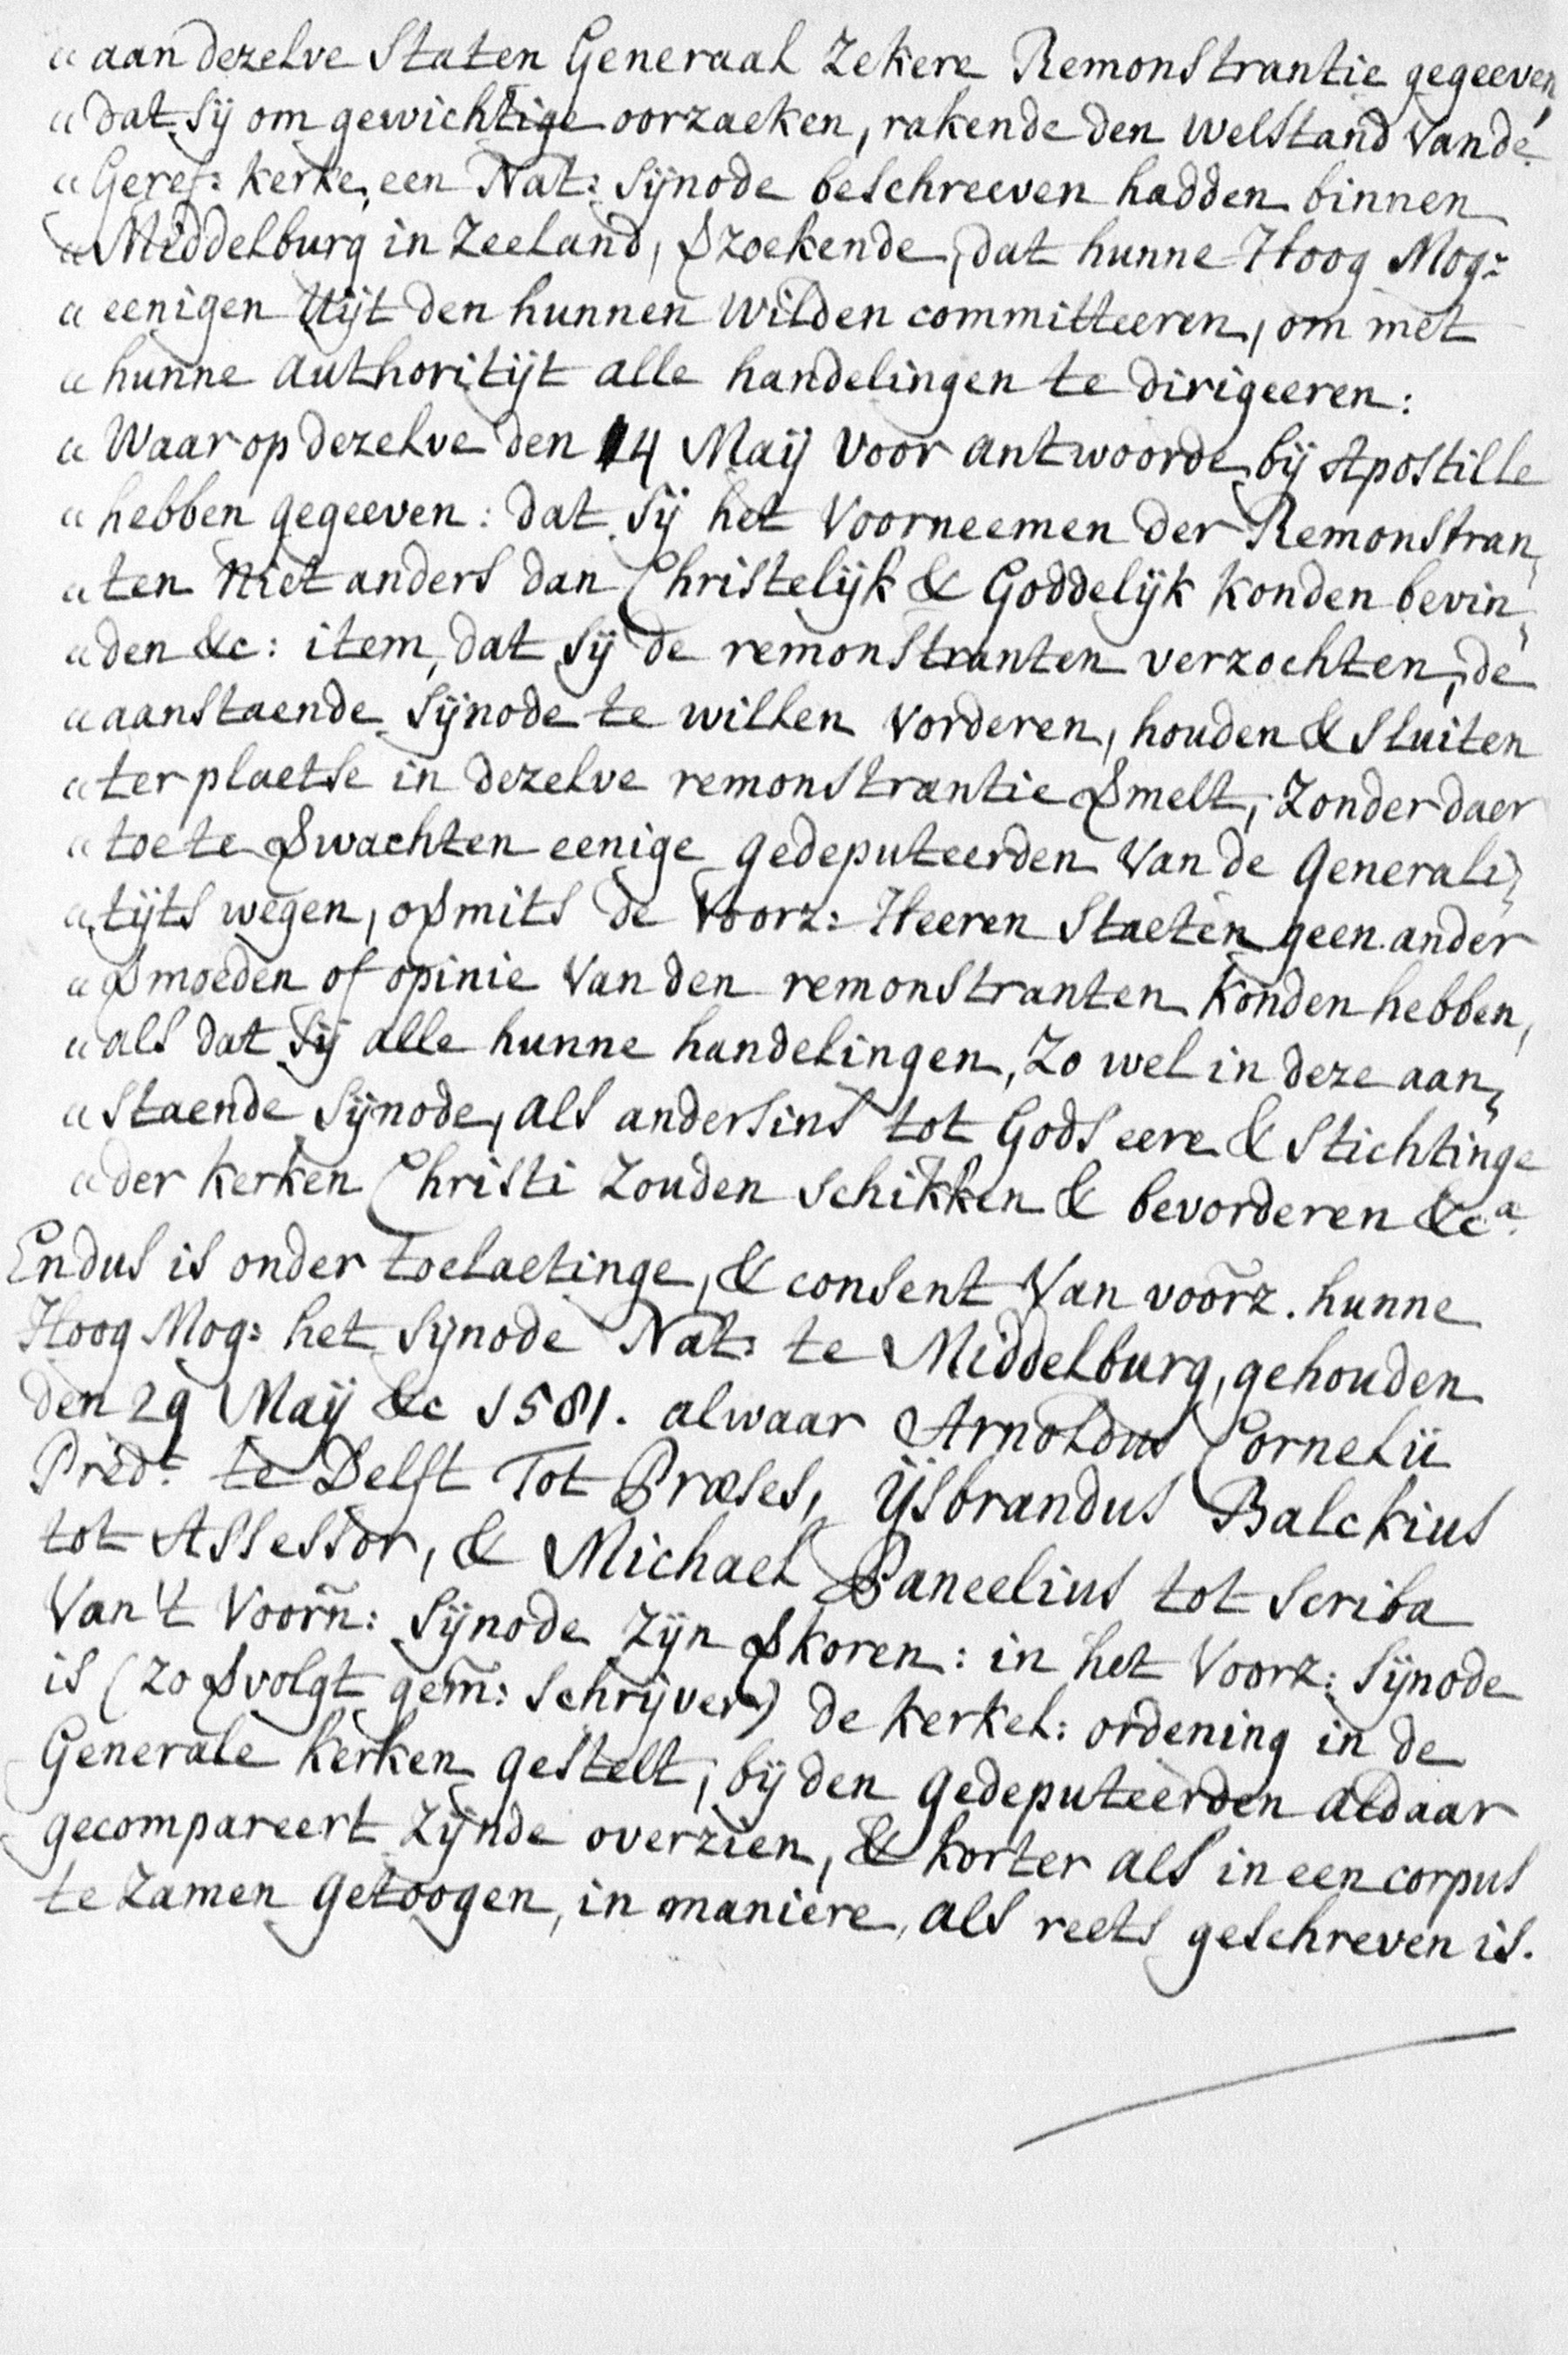 „ aan dezelve Staten Generaal Zekere Remonstrantie gegeeven,
„ dat sij om gewichtige oorzaeken, rakende den welstand van de
„ Geref: kerke, een Nat: Sijnode beschreeven hadden binnen
„ Middelburg in Zeeland, ꝟzoekende, dat hunne Hoog Mog:
„ eenigen Uijt den hunnen wilden committeeren, om met
„ hunne authoritijt alle handelingen te dirigeeren:
„ Waar op dezelve den 14 Maij voor antwoorde bij Apostille
„ hebben gegeeven: dat sij het voorneemen der Remonstran,
„ ten niet anders dan Christelijk & Goddelijk konden bevin,
„ den &c: item, dat sij de remonstranten verzochten, de
„ aanstaende Sijnode te willen vorderen, houden & sluiten
„ ter plaetse in dezelve remonstrantie ꝟmelt, zonder daer
„ toe te ꝟwachten eenige gedeputeerden van de Generali,
„ tijts wegen, oꝟmits de Voorz: Heeren Staeten geen ander
„ ꝟmoeden of opinie van den remonstranten konden hebben,
„ als dat sij alle hunne handelingen, zo wel in deze aan,
„ staende Sijnode, als andersins tot Gods eere & stichtinge
„ der kerken Christi zouden schikken & bevorderen &cª
En dus is onder toelaetinge, & consent van voor̃z. hunne
Hoog Mog: het Sijnode Nat: te Middelburg, gehouden
den 29 Maij &c 1581. alwaar Arnoldus Cornelii
Pred.t te Delft tot Præses, IJsbrandus Balckius
tot Assessor, & Michael Paneelius tot Scriba
van 't Voorñ: Sijnode zijn ꝟkoren: in het Voorz: Sijnode
is (zo ꝟvolgt gem̃: Schrijver) de kerkel: ordening in de
Generale kerken gestelt, bij den gedeputeerden aldaar
gecompareert zijnde overzien, & korter als in een corpus
te zamen getoogen, in maniere, als reets geschreven is.